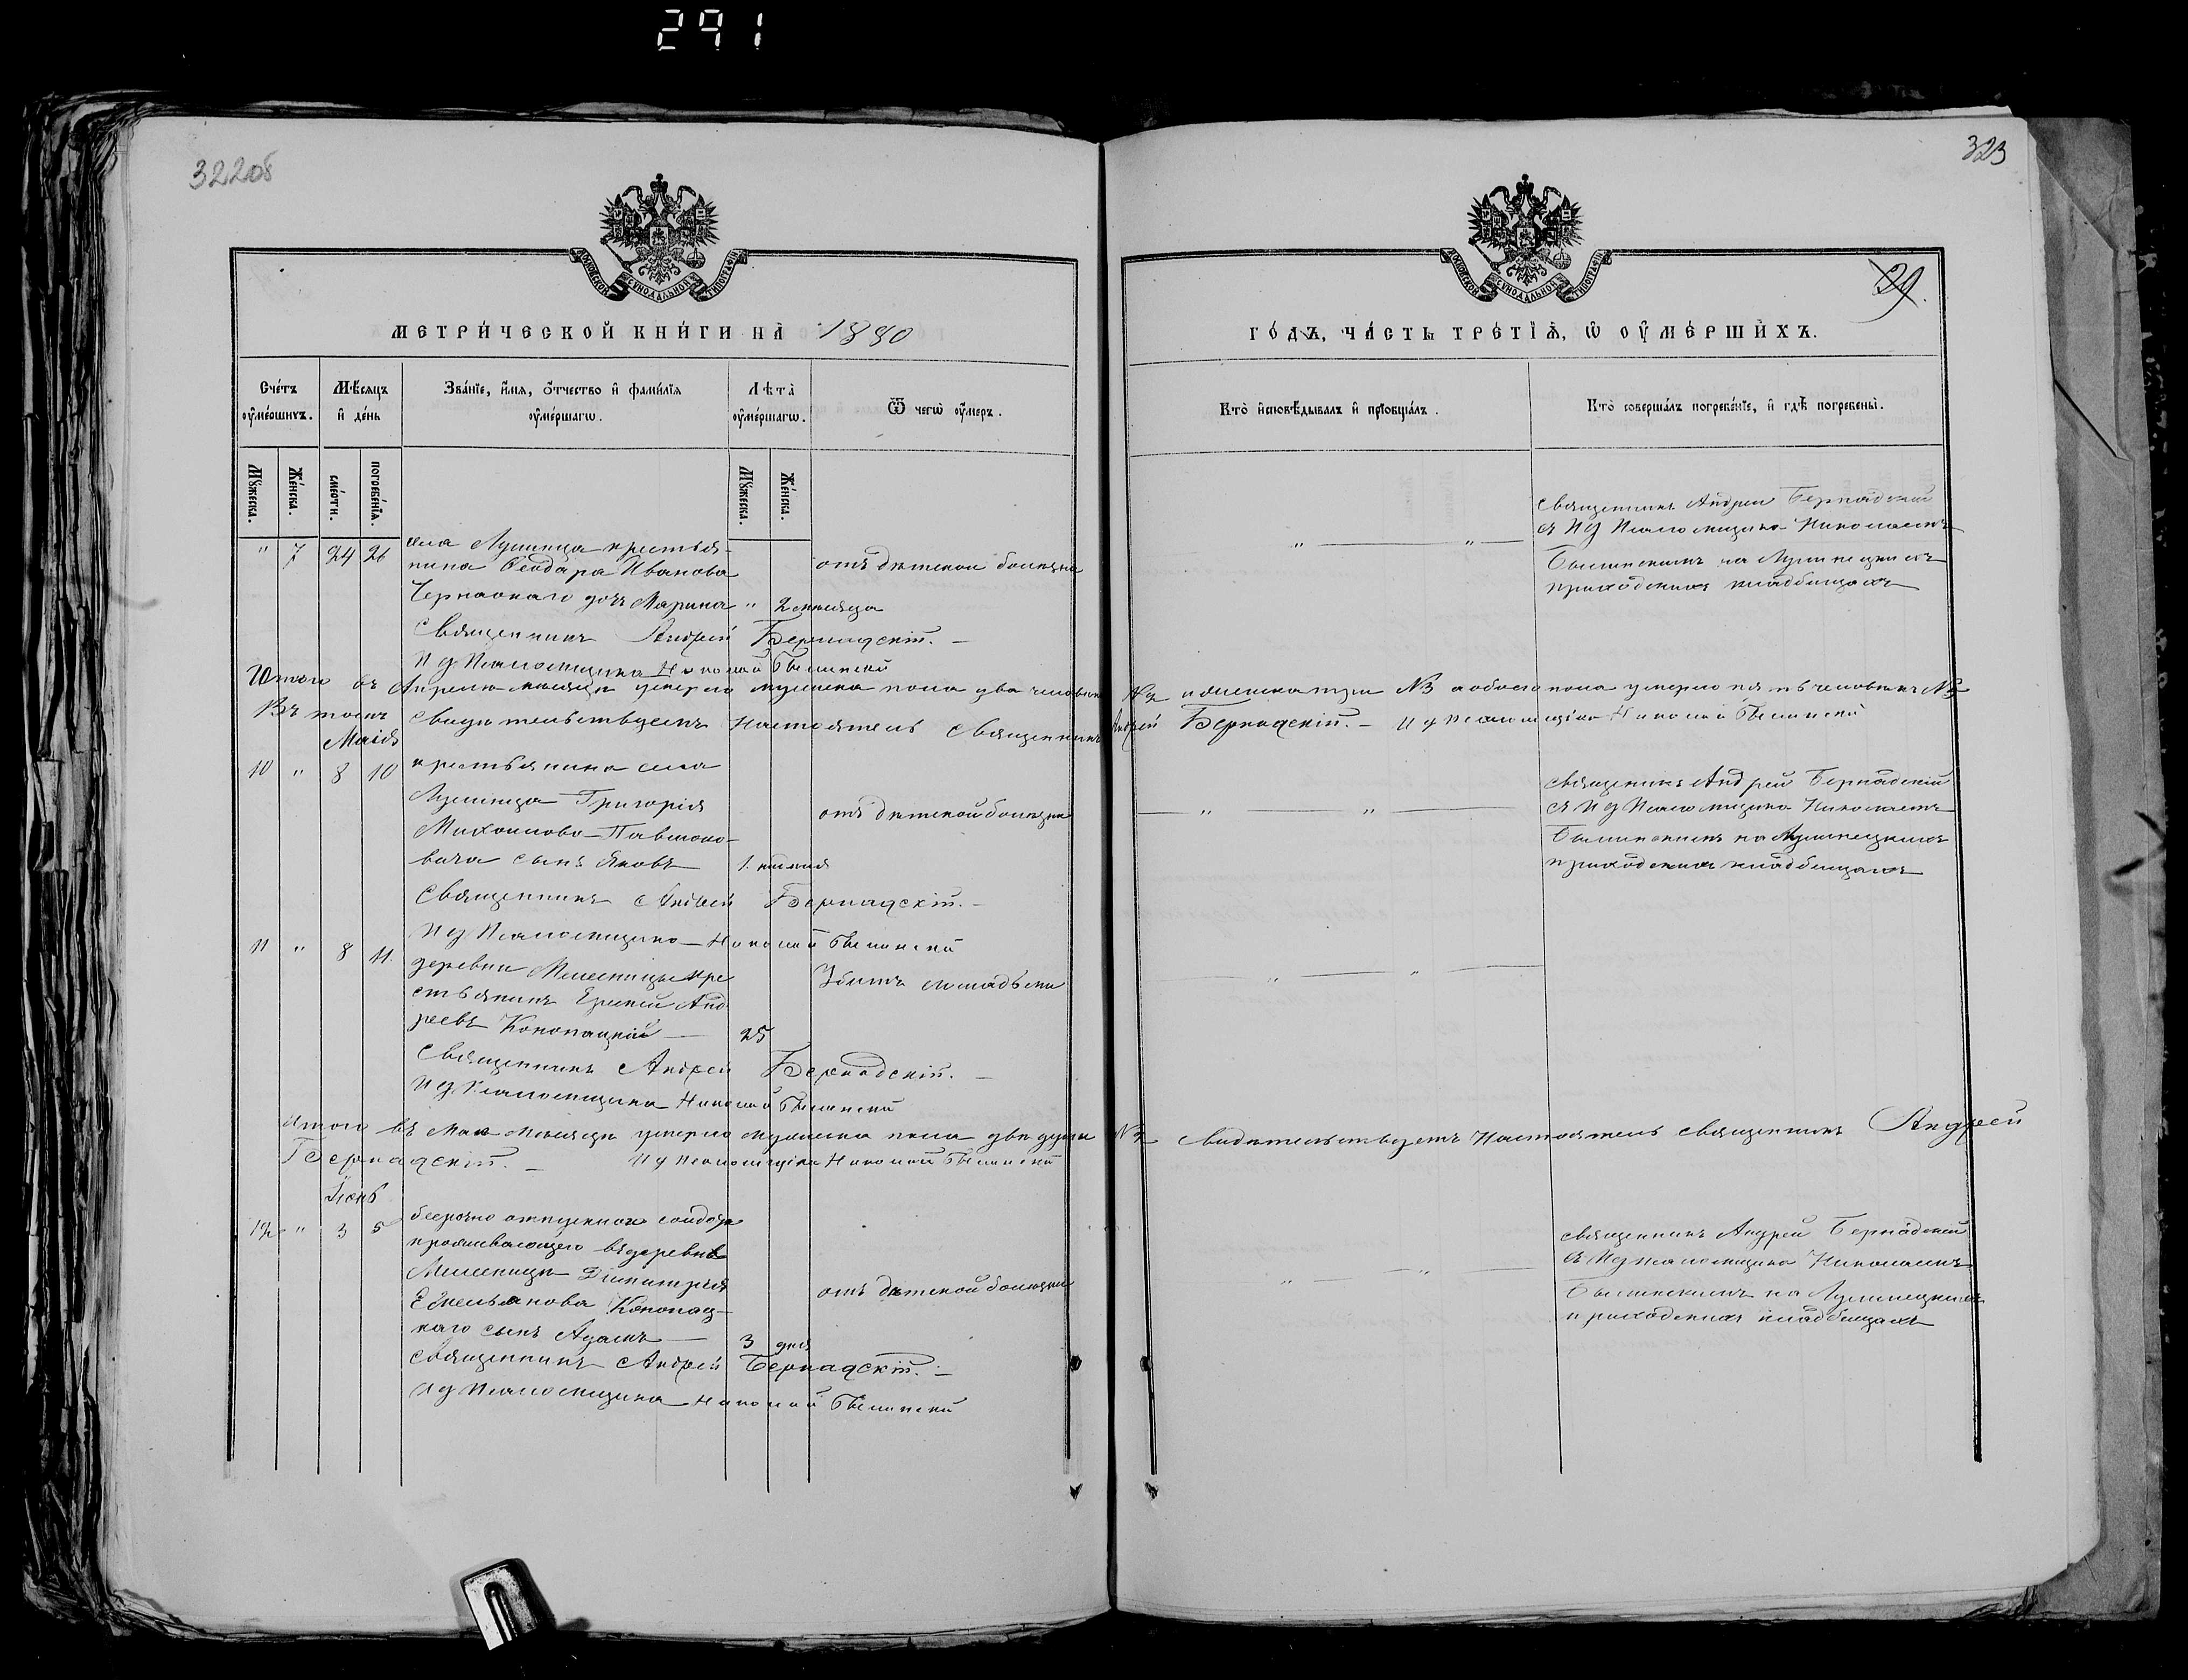 291
322об
323
29.
МОСКОВСКОЙ СѴНОДАЛЬНОЙ ТИПОГРАФІИ
МОСКОВСКОЙ СѴНОДАЛЬНОЙ ТИПОГРАФІИ
МЕТРИ́ЧЕСКОЙ КНИ́ГИ НА̀ 1890
ГО́ДЪ, ЧА́СТЬ ТРЕ́ТІѦ, Ѡ ОУ҆МЕ́РШИХЪ.
Сче́тъ оу҆ме́ршихъ.
Мѣ́сяцъ и҆ де́нь
Зва́нїе, и҆́мя, ѻ҆́тчество и҆ фами́лїя оу҆ме́ршагѡ.
Лѣ́та оу҆ме́ршагѡ.
Ѿ чегѡ̀ оу҆́меръ.
Кто̀ и҆сповѣ́дывалъ и҆ прїобща́лъ.
Кто̀ соверша́лъ погребе́нїе, и҆ гдѣ̀ погребены̀.
Мꙋ́жеска.
Же́нска.
сме́рти.
погребе́нїя.
Мꙋ́жеска.
Же́нска.
" 7 24 26 села Лунинца крестья-
нина Ѳеодора Иванова
Чернаокаго дочь Марина " 2 месяца
отъ дѣтской болѣзни
Священникъ Андрей Бернадский
съ И д Псаломщика Николаемъ
Былинскимъ на Лунинецкихъ
приходскихъ кладбищахъ
Священникъ Андрей Бернадскій. –
И д Псаломщика Николай Былинский
Итого въ Апрелѣ месяцѣ умерло мужеска пола два человека №2 и женска три №3 а обоего пола умерло пять человекъ №5
Въ томъ свидѣтельствуемъ Настоятель Священникъ Андрей Бернадскій. – И д Псаломщика Николай Былинский
Маія
10 " 8 10 крестьянина села
Лунинца Григорія
Михоилова Павлюко-
вича сынъ Яковъ 1. неделя
отъ дѣтской болѣзни
Священникъ Андрей Бернадскій
съ И д Псаломщика Николаемъ
Былинскимъ на Лунинецкихъ
приходскихъ кладбищахъ
Священникъ Андрей Бернадскій. –
И д Псаломщика Николай Былинский
11 " 8 11. деревни Мелесницы кре
стьянинъ Ермей Анд
реевъ Конопацкий 25
Убитъ лошадьми
Священникъ Андрей Бернадскій. –
И д Псаломщика Николай Былинский
Итого въ Мае Месяцѣ умерло мужеска пола две души №2 Свидѣтельствуетъ Настоятель священникъ Андрей
Бернадскій. – И д Псаломщика Николай Былинский
Іюнь
12 " 3 5 безсрочно отпускнаго солдата
проживающаго въ деревнѣ
Мелесницѣ Димитрія
Емельянова Конопац-
каго сынъ Адамъ 3 дня
отъ дѣтской болѣзни
священникъ Андрей Бернадский
съ И д Псаломщика Николаемъ
Былинскимъ на Лунинецкихъ
приходскихъ кладбищахъ
Священникъ Андрей Бернадскій. –
И д Псаломщика Николай Былинский